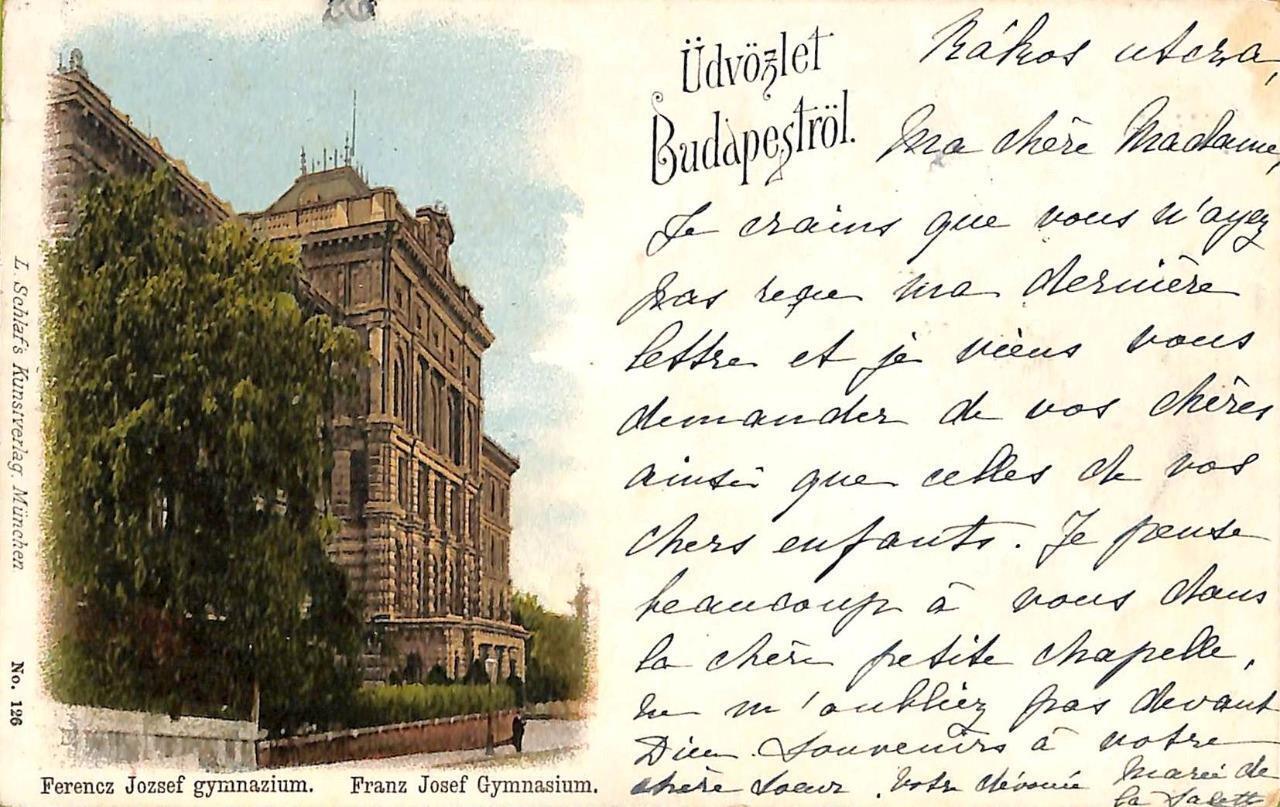 Üdvözlet
Budapeströl.
Rákos utcza,
Ma chère Madame,
Je crains que vous n'ayez
pas reçu ma dernière
lettre et je viens vous
demander de vos chères
ainsi que celles de vos
chers enfants. Je pense
beaucoup à vous dans
la chère petite chapelle,
ne m'oubliez pas devant
Dieu. Souvenirs à votre
chère soeur. Votre dévouée Marie de
la Salette
L. Schlaf's Kunstverlag, München
No. 126
Ferencz Jozsef gymnazium. Franz Josef Gymnasium.